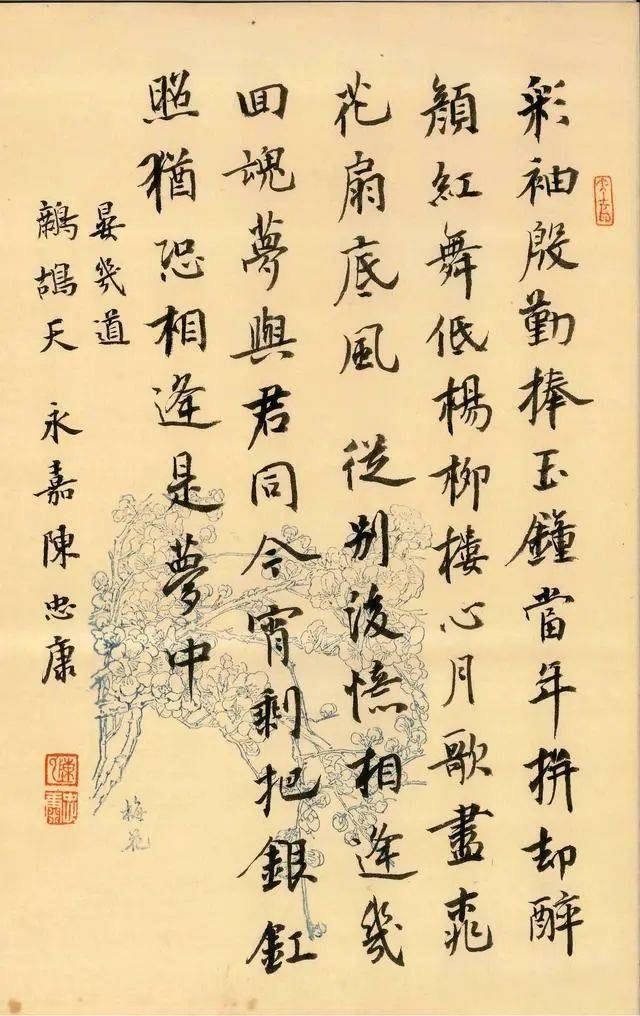 彩袖殷勤捧玉鐘當年拚却醉
顔紅舞低楊柳樓心月歌盡桃
花扇底風 從别後憶相逢幾
回魂夢與君同今宵剩把銀釭
照猶恐相逢是夢中
晏幾道
鷓鴣天 永嘉陳忠康
梅花